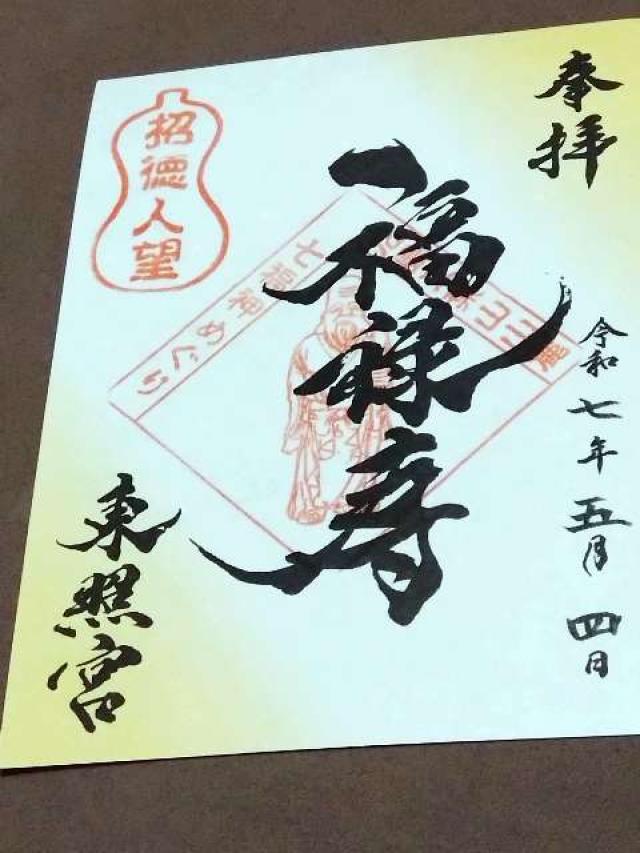 奉拝
令和七年五月四日
福禄寿
東照宮
招徳人望
七福神めぐり